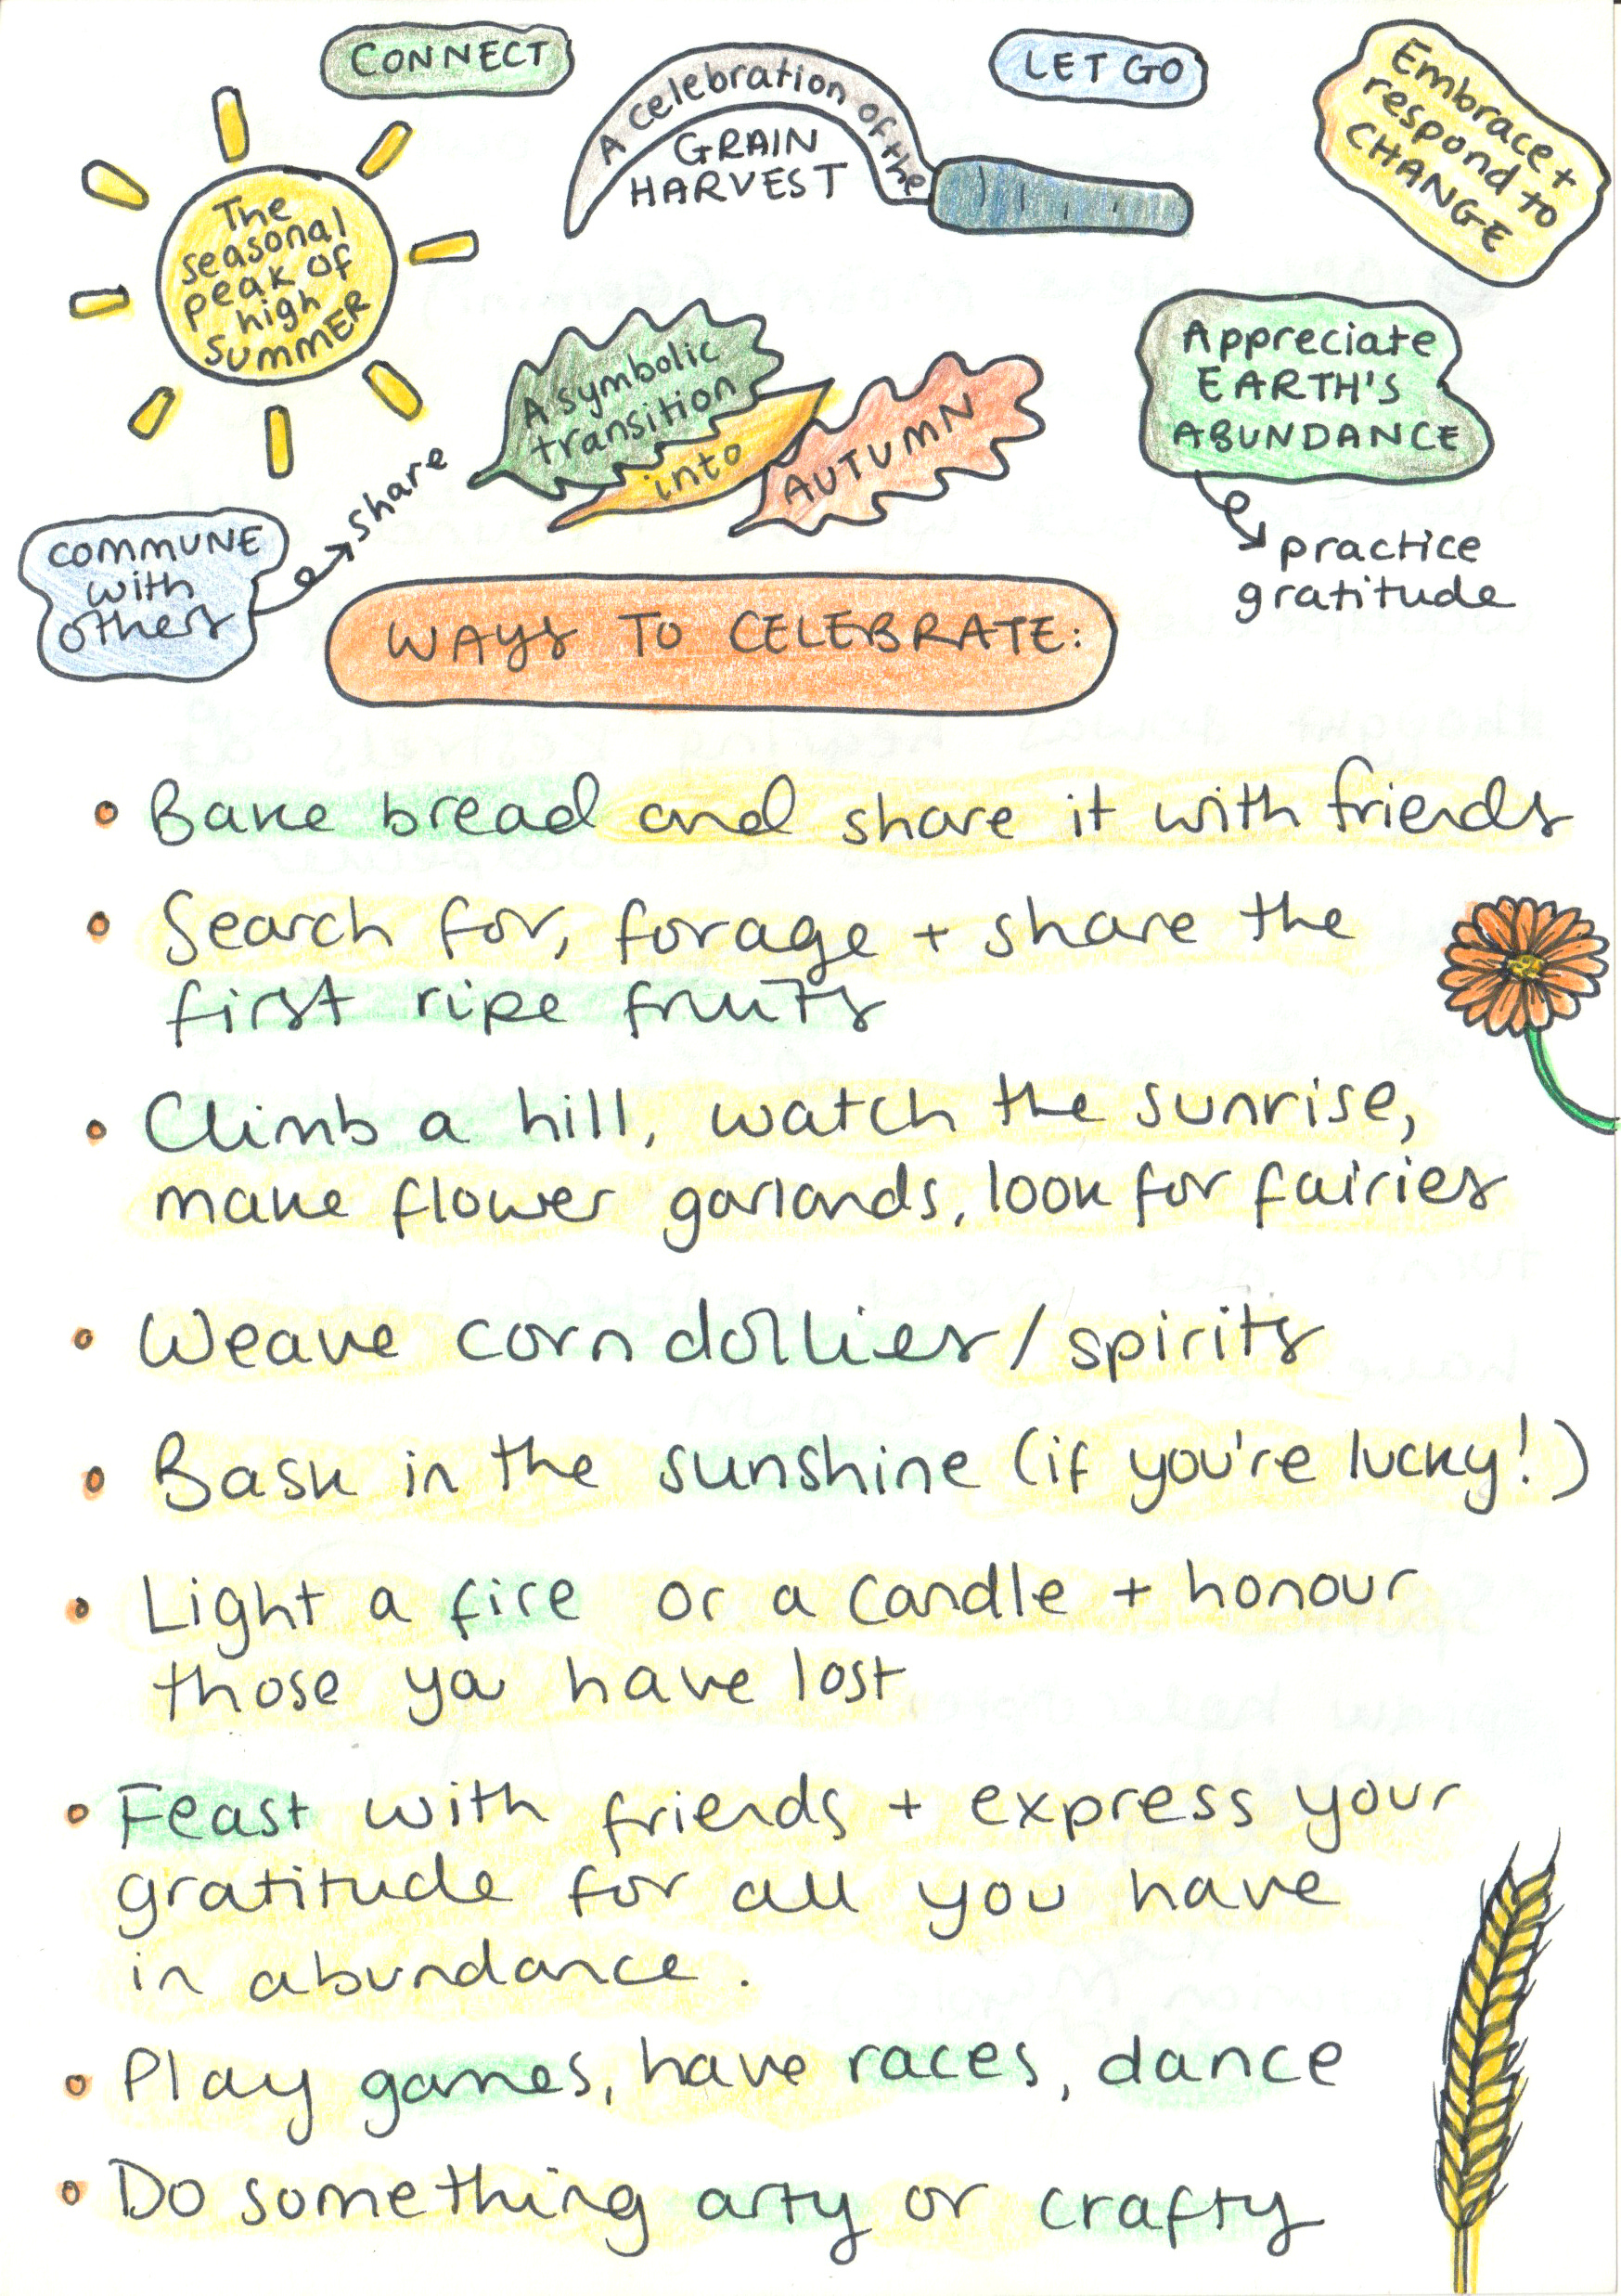 CONNECT
A celebration of the
GRAIN
HARVEST
LET GO
Embrace +
respond to
CHANGE
The
seasonal
peak of
high
SUMMER
A symbolic
transition
into
AUTUMN
Appreciate
EARTH'S
ABUNDANCE
practice
gratitude
COMMUNE
with
others
share
WAYS TO CELEBRATE:
• Bake bread and share it with friends
• Search for, forage + share the
first ripe fruits
• Climb a hill, watch the sunrise,
make flower garlands, look for fairies
• Weave corn dollies / spirits
• Bask in the sunshine (if you're lucky!)
• Light a fire or a candle + honour
those ya have lost
• Feast with friends + express your
gratitude for all you have
in abundance.
• Play games, have races, dance
• Do something arty or crafty